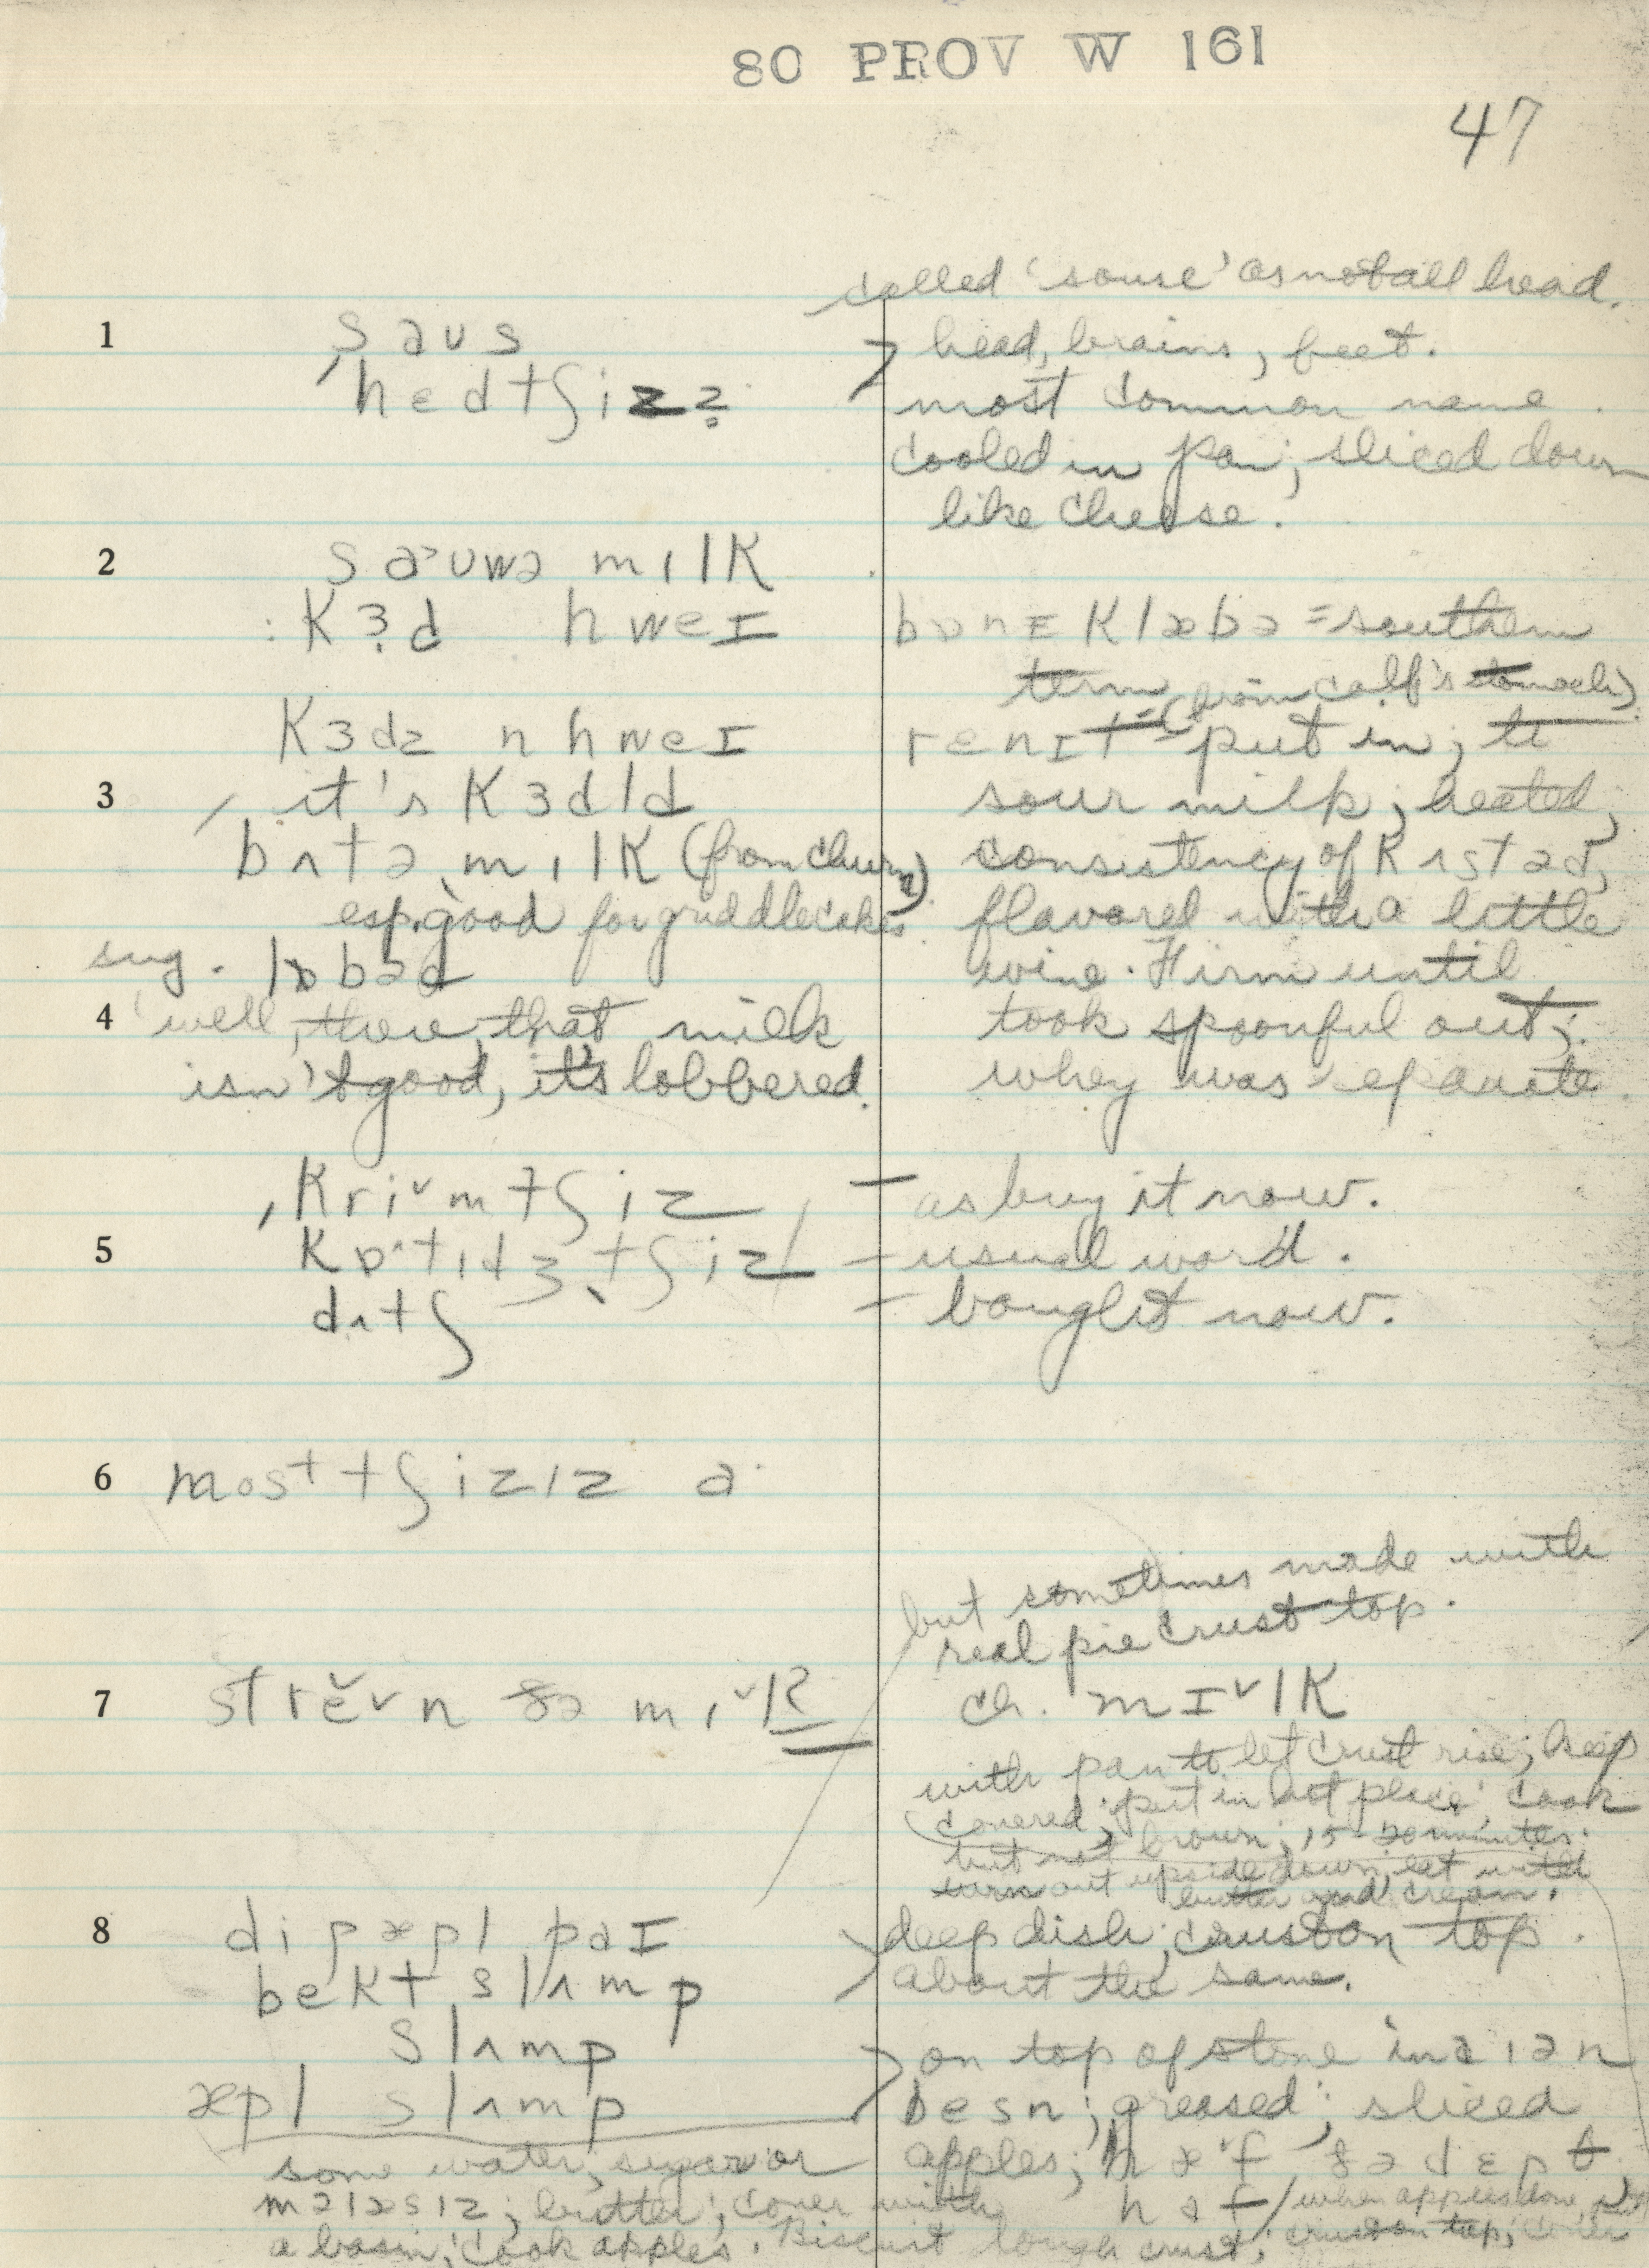 80 PROV W 161
47
called 'souse' as not all head.
1 saus head, brains, feet.
ˌhɛdtʃizz̥ most common name.
cooled in pan; sliced down
like cheese.
2 saˑuwə mɪlk
: kɜd hweɪ bɒnɪklæbə = southern
term (from calf's stomach)
kɜdz n hweɪ rɛnɪt = put in; to
3 it's kɜdld sour milk; heated,
bʌtəˌmɪlk (from churn) consistency of kʌstəd,
esp. good for griddlecakes. flavored with a little
sug. lɒbəd wine. Firm until
4 'well, there, that milk took spoonful out;
isn't good, it's lobbered. whey was separate.
ˌkri˅mtʃiz — as buy it now.
5 kɒˑtɪdʒˌtʃiz — usual word.
dʌtʃ — bought now.
6 most tʃizɪz a·
but sometimes made with
real pie crust top.
7 strĕ˅n ðə mɪ˅lk ch. mɪ˅lk
with pan to let crust rise; keep
covered; put in hot place; cook
but not brown; 15-20 minutes.
turn out upside down, eat with
butter and cream.
8 dipæpl paɪ deep dish; crust on top.
bekt slʌmp about the same.
slʌmp on top of stove in a ɪən
æpl slʌmp besn; greased; sliced
some water, sugar or apples; hæ˅f ðə dɛpt,
məlæsɪz; butter; cover with haf / when apples done,
a basin; cook apples. Biscuit dough crust; crust on top; cover